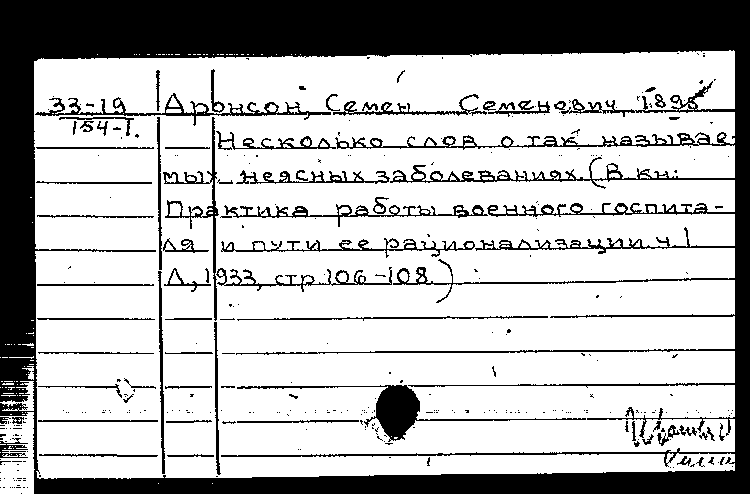 33-19
154-1.
Аронсон, Семен Семенович, 1898
Несколько слов о так называе-
мых неясных заболеваниях. (В кн:
Практика работы военного госпита-
ля и пути ее рационализации. ч. 1
Л., 1933, стр. 106-108.)